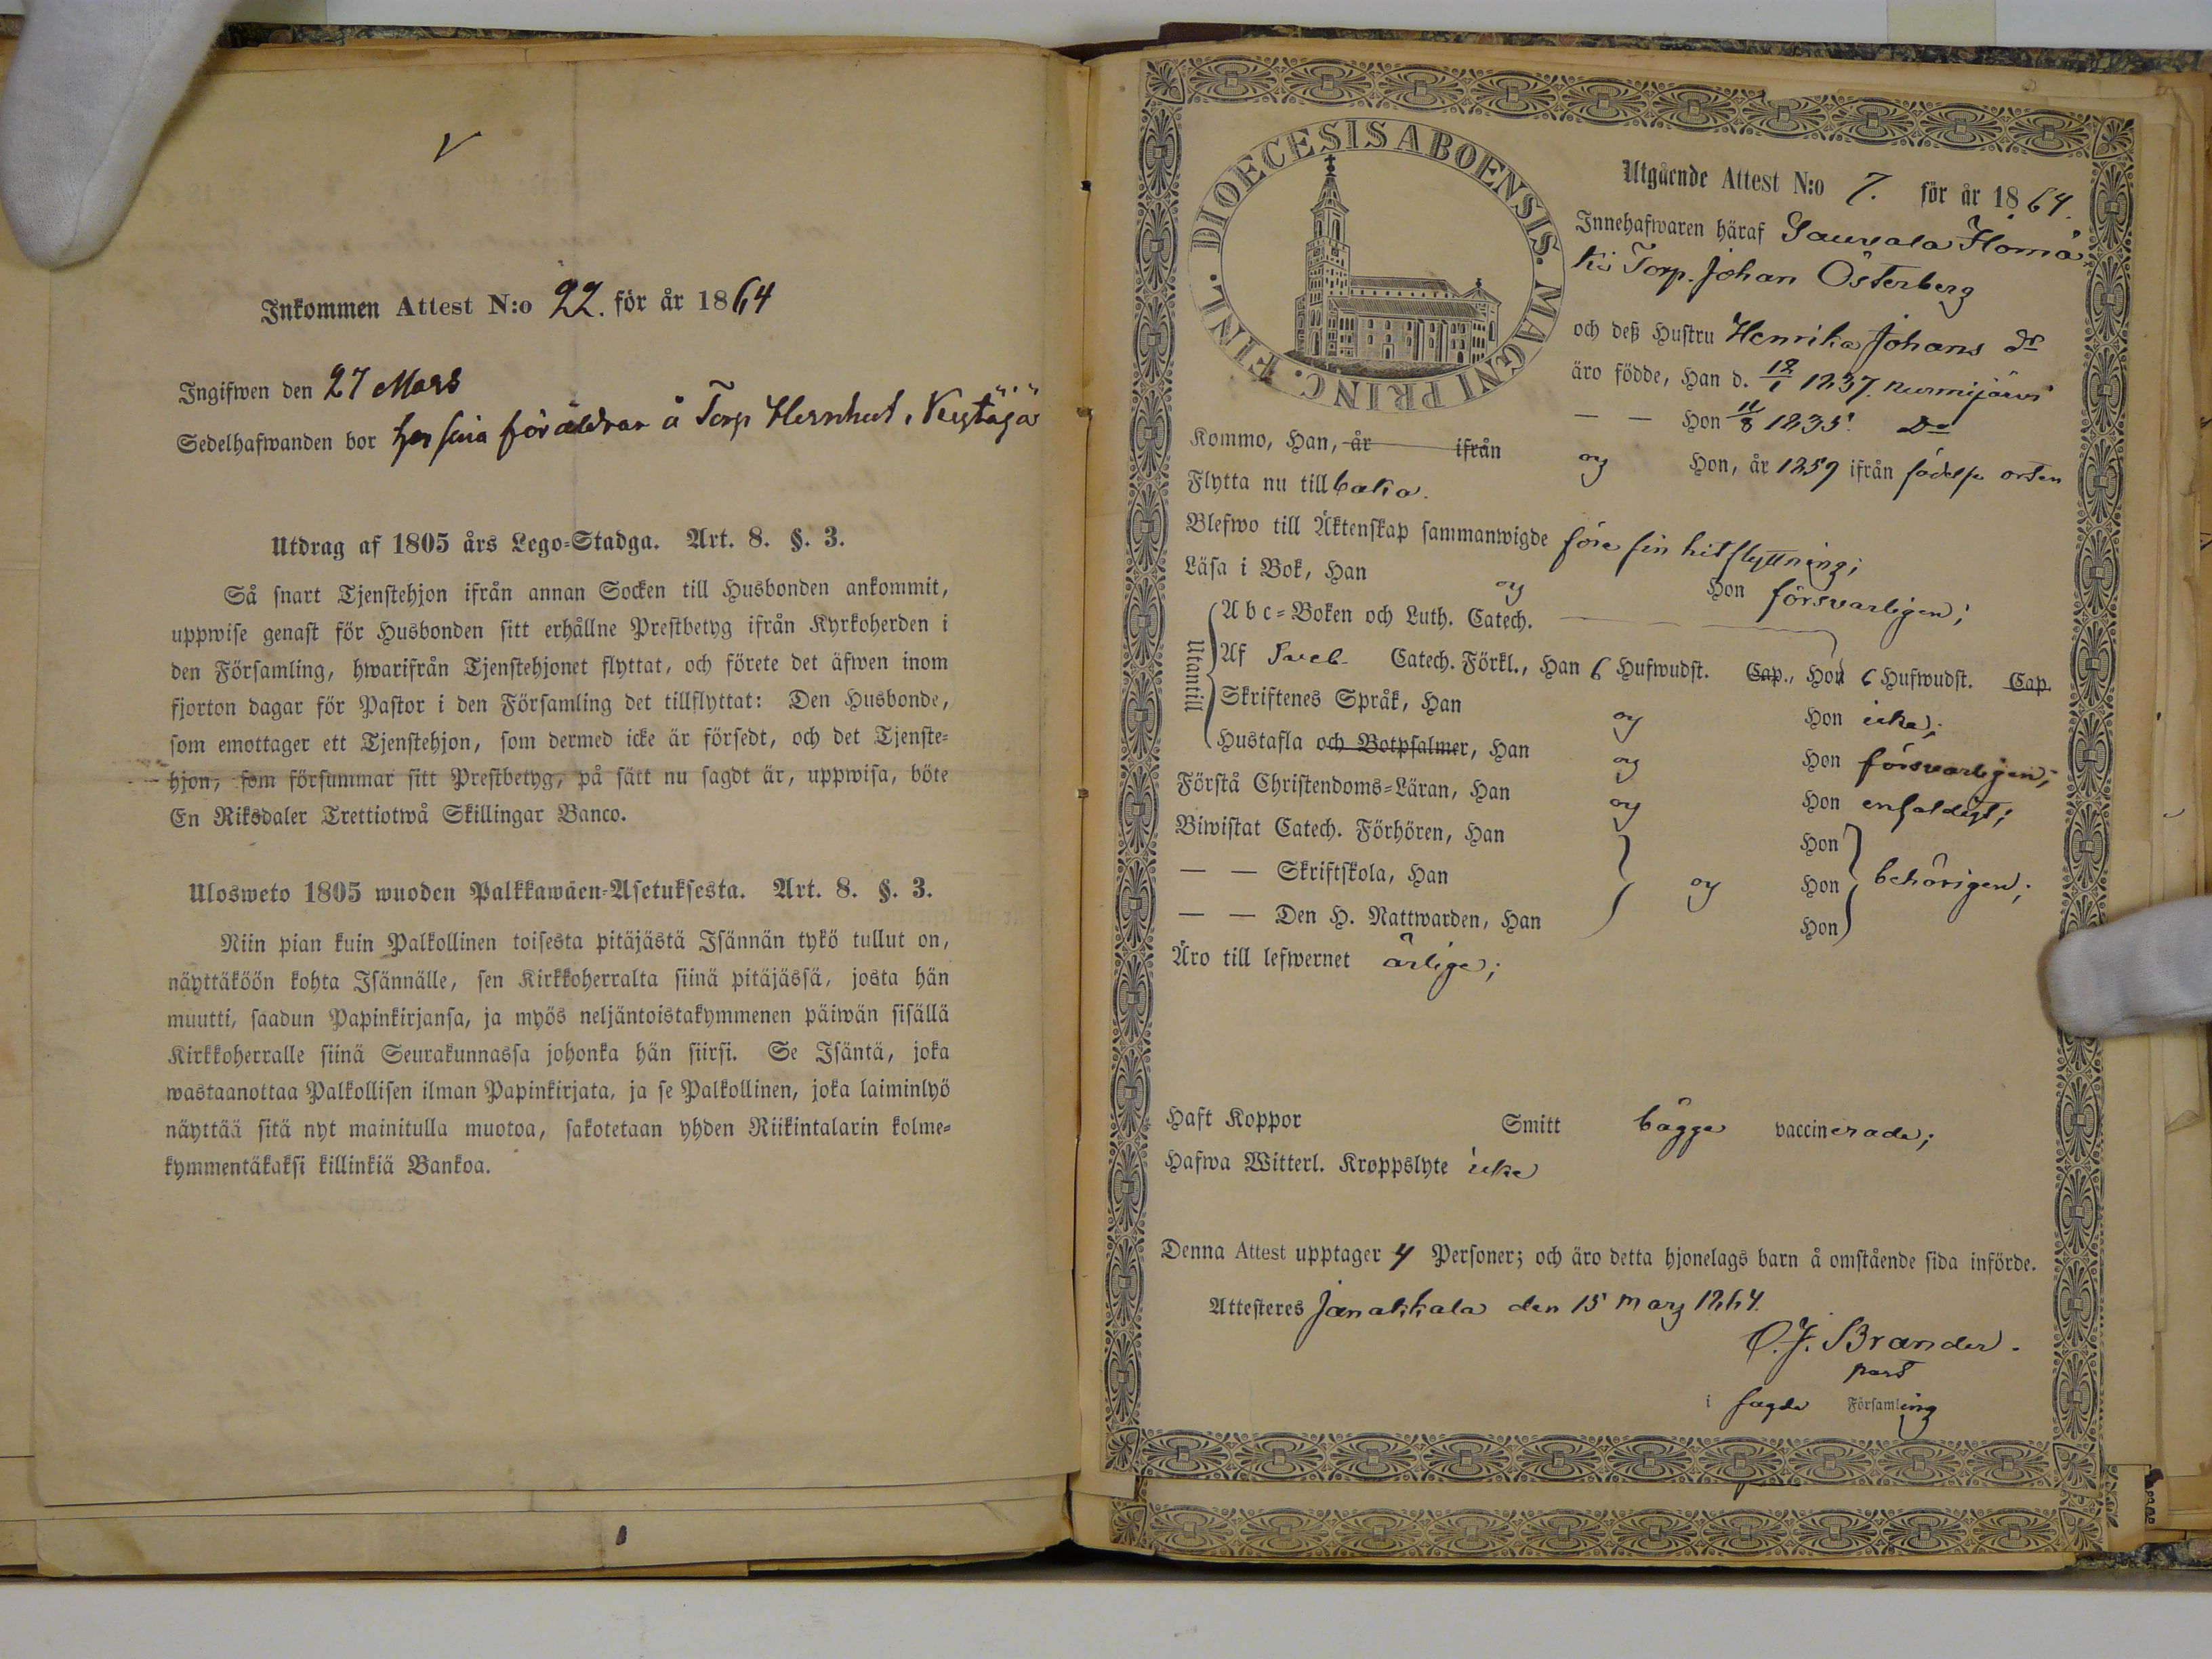 Inkommen Attest N:o 22. för år 1864
Ingifwen den 27 Mars
Sedelhafwanden bor hos sina föräldrar å Torp Hernhut i
Utdrag af 1805 års Lego-Stadga. Art. 8. §. 3.
Så snart Tjenstehjon ifrån annan Socken till Husbonden ankommit,
uppwise genast för Husbonden sitt erhållne Prestbetyg ifrån Kyrkoherden i
den Församling, hwarifrån Tjenstehjonet flyttat, och förete det äfwen inom
fjorton dagar för Pastor i den Församling det tillflyttat: Den Husbonde,
som emottager ett Tjenstehjon, som dermed icke är försedt, och det Tjenste-
hjon, som försummar sitt Prestbetyg, på sätt nu sagdt är, uppwisa, böte
En Riksdaler Trettiotwå Skillingar Banco.
Ulosweto 1805 wuoden Palkkawäen-Asetuksesta. Art. 8. §. 3.
Niin pian kuin Palkollinen toisesta pitäjästä Isännän tykö tullut on,
näyttäköön kohta Isännälle, sen Kirkkoherralta siinä pitäjässä, josta hän
muutti, saadun Papinkirjansa, ja myös neljäntoistakymmenen päiwän sisällä
Kirkkoherralle siinä Seurakunnassa johonka hän siirsi. Se Isäntä, joka
wastaanottaa Palkollisen ilman Papinkirjata, ja se Palkollinen, joka laiminlyö
näyttää sitä nyt mainitulla muotoa, sakotetaan yhden Riikintalarin kolme-
kymmentäkaksi killinkiä Bankoa.
DIOECESIS ABOENSIS. MAGNI PRINC. FINL.
Utgående Attest N:o 7. för år 1864.
Innehafwaren häraf Saurala Homä
ki Torp. Johan Österberg
och deß Hustru Henrika Johans dr
äro födde, Han d. 12/1 1837. Nurmijärvi
— — Hon 11/8 1835. Do
Kommo, Han, år ifrån og Hon, år 1859 ifrån födelse orten
Flytta nu tillbaka.
Blefwo till Äktenskap sammanwigde före sin hitflyttning;
Läsa i Bok, Han og Hon försvarligen;
Utantill
Abc-Boken och Luth. Catech.
Af Sveb. Catech. Förkl., Han 6 Hufwudst. Cap., Hon 6 Hufwudst. Cap.
Skriftenes Språk, Han og Hon icke;
Hustafla och Botpsalmer, Han og Hon försvarligen;
Förstå Christendoms-Läran, Han og Hon enfaldigt;
Biwistat Catech. Förhören, Han Hon
— — Skriftskola, Han og Hon behörigen;
— — Den H. Nattwarden, Han Hon
Äro till lefwernet ärliga;
Haft Koppor Smitt bägge vaccinerade;
Hafwa Witterl. Kroppslyte icke
Denna Attest upptager 4 Personer; och äro detta hjonelags barn å omstående sida införde.
Attesteres Janakkala den 15 Mars 1864.
C. J. Brander.
past
i sagde Församling